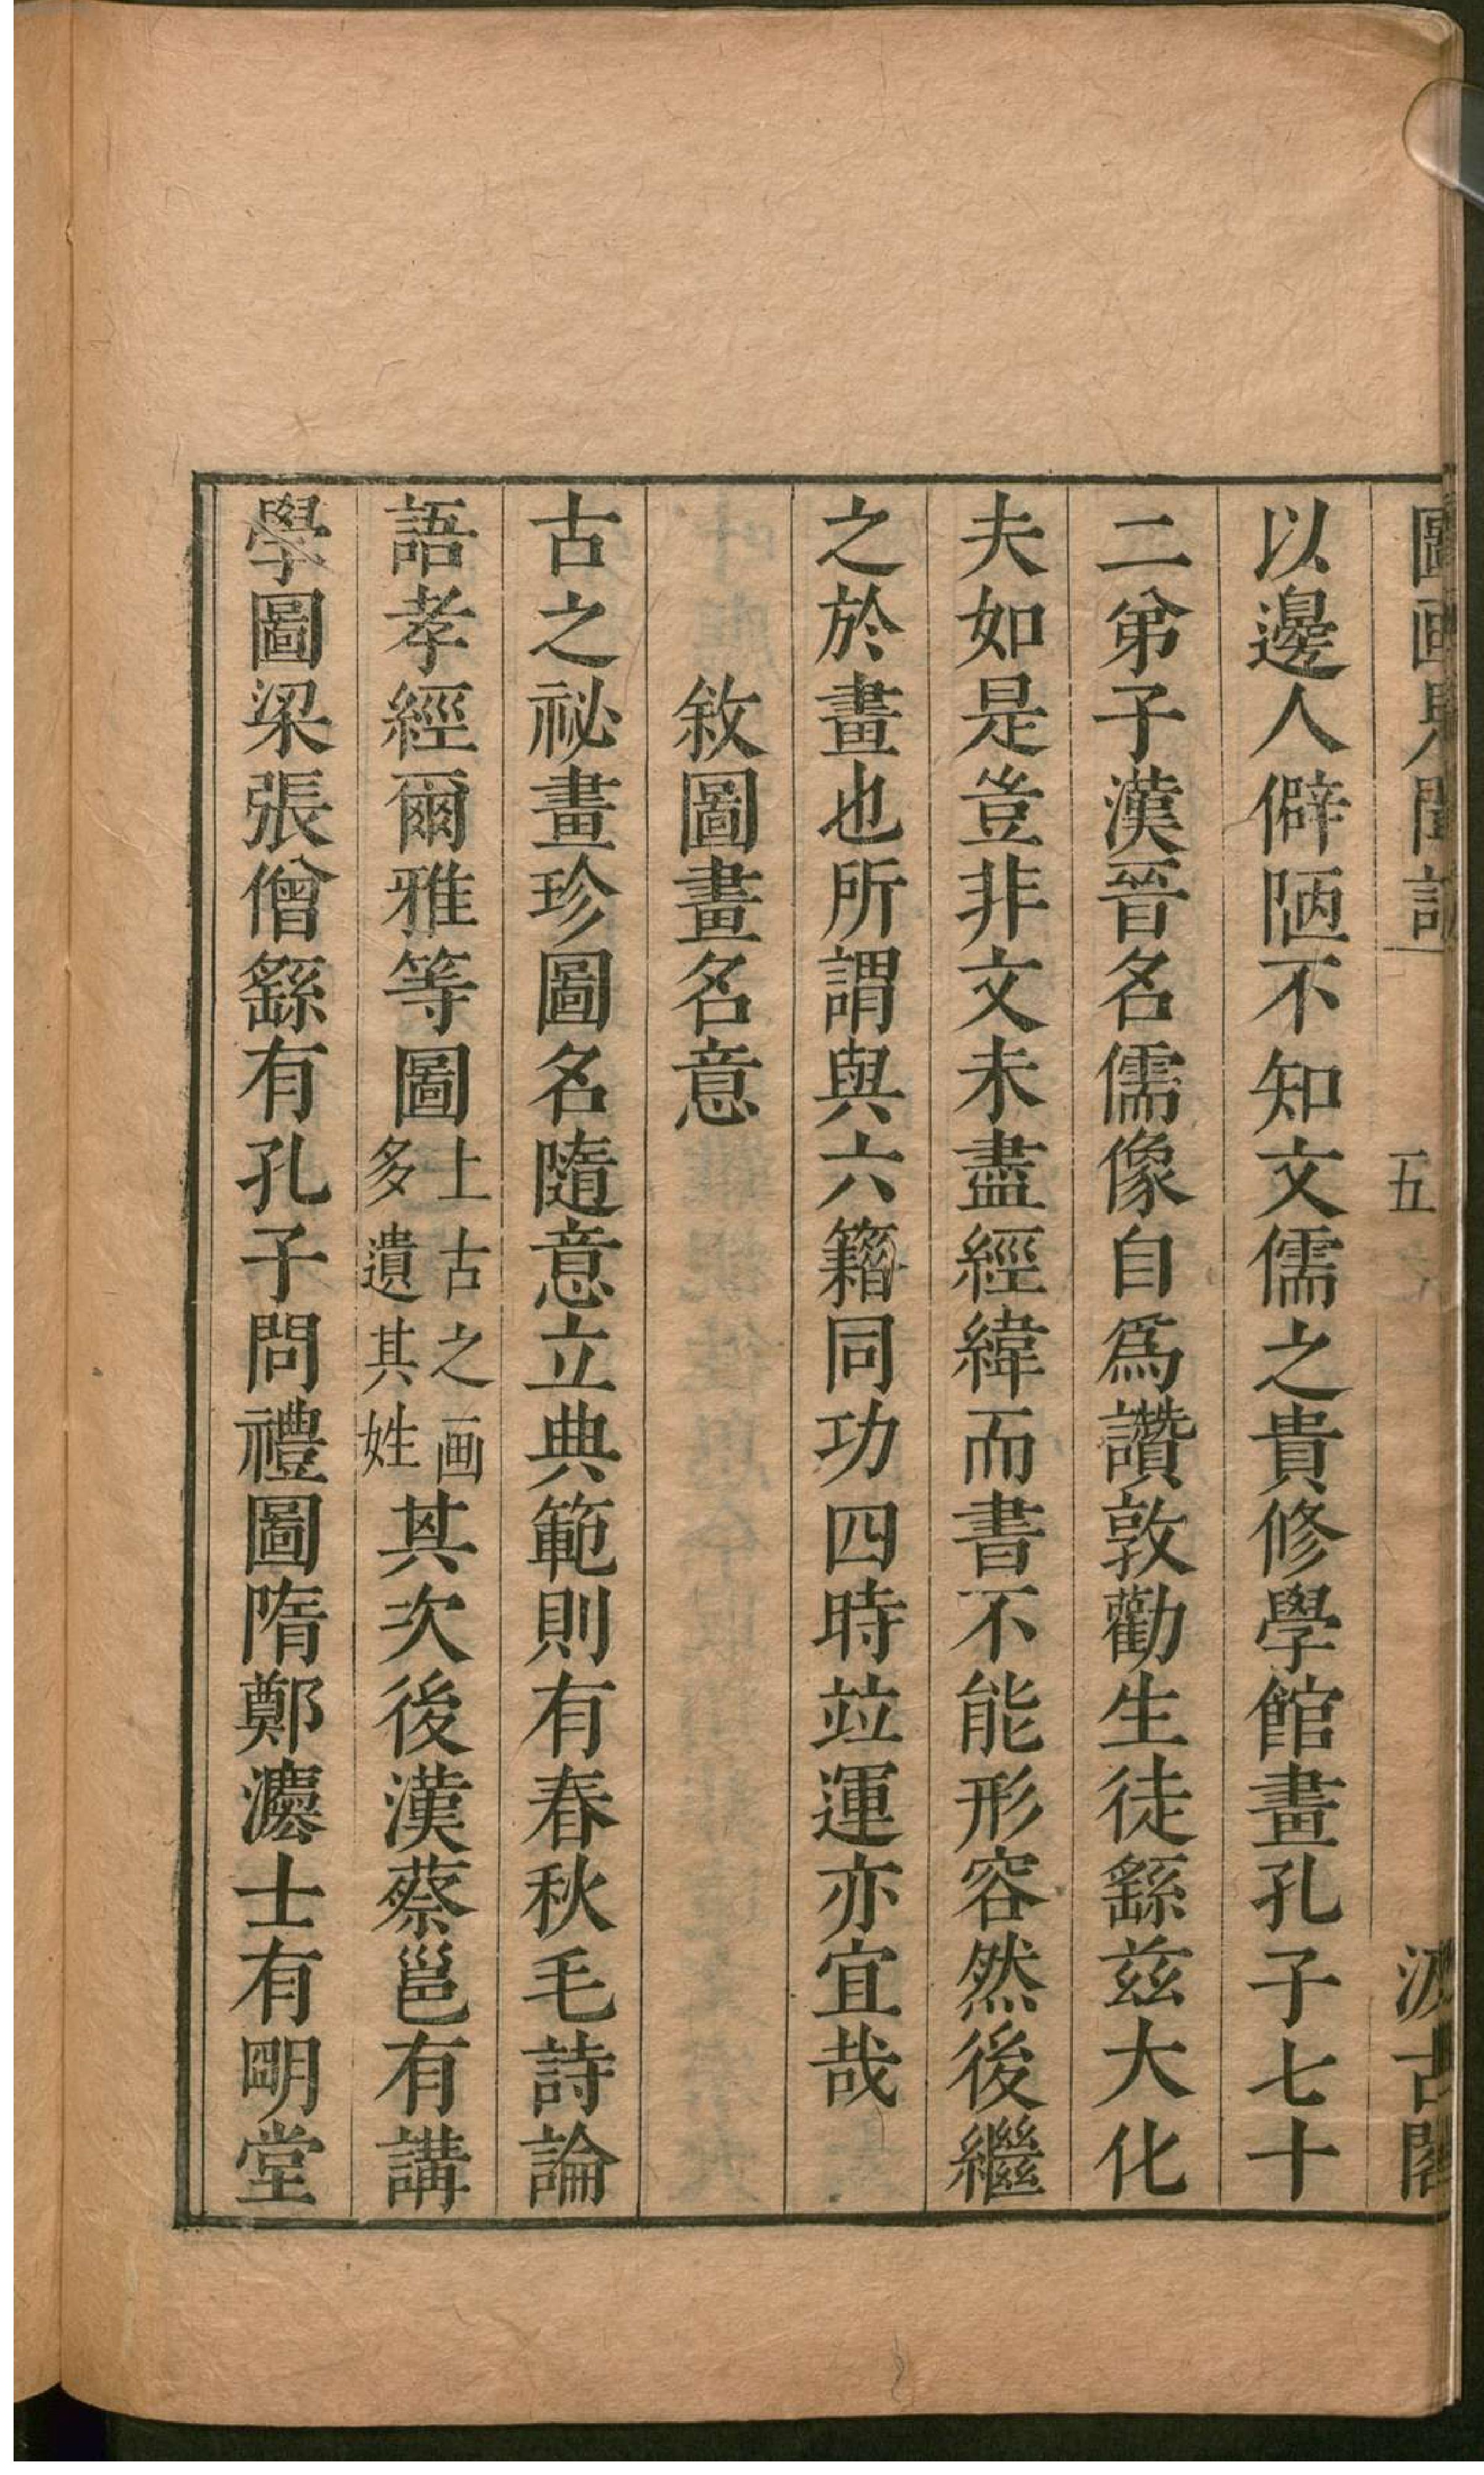 圖画見聞記 五 汲古閣
以邊人僻陋不知文儒之貴修學館畫孔子七十
二弟子漢晉名儒像自爲讚敦勸生徒繇玆大化
夫如是豈非文未盡經緯而書不能形容然後繼
之於畫也所謂與六籍同功四時竝運亦宜哉
敘圖畫名意
古之祕畫珍圖名隨意立典範則有春秋毛詩論
語孝經爾雅等圖上古之画多遺其姓其次後漢蔡邕有講
學圖梁張僧繇有孔子問禮圖隋鄭灋士有明堂